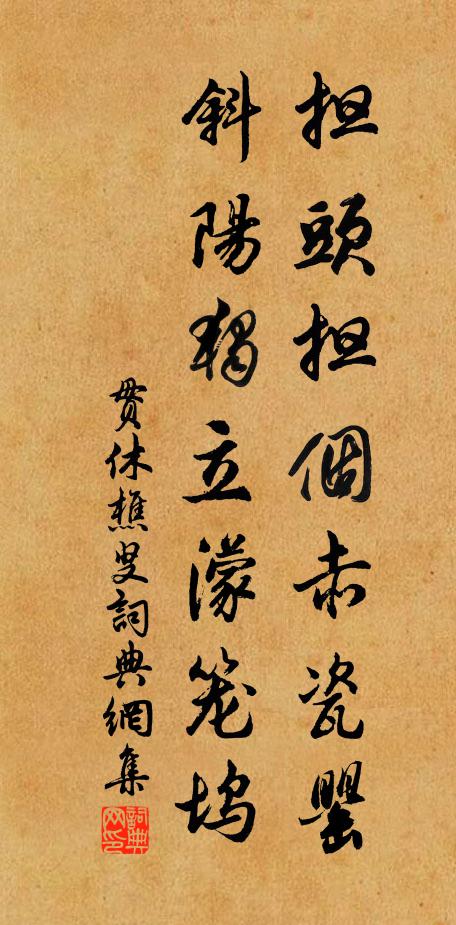 担頭担個赤瓷罌
斜陽獨立濛笼坞
貫休樵叟詞典網集
詞典网印